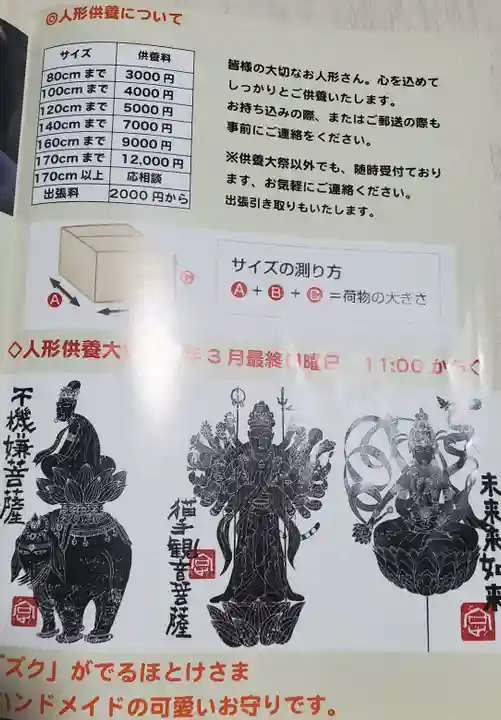 ◎人形供養について
サイズ 供養料
80cmまで 3000円
100cmまで 4000円
120cmまで 5000円
140cmまで 7000円
160cmまで 9000円
170cmまで 12,000円
170cm以上 応相談
出張料 2000円から
皆様の大切なお人形さん。心を込めて
しっかりとご供養いたします。
お持ち込みの際、またはご郵送の際も
事前にご連絡をください。
※供養大祭以外でも、随時受付ており
ます、お気軽にご連絡ください。
出張引き取りもいたします。
A
B
C
サイズの測り方
A + B + C =荷物の大きさ
◇人形供養大 年3月最終 曜日 11:00から
不機嫌菩薩
猫手観音菩薩
未来来如来
ズク」がでるほとけさま
ハンドメイドの可愛いお守りです。